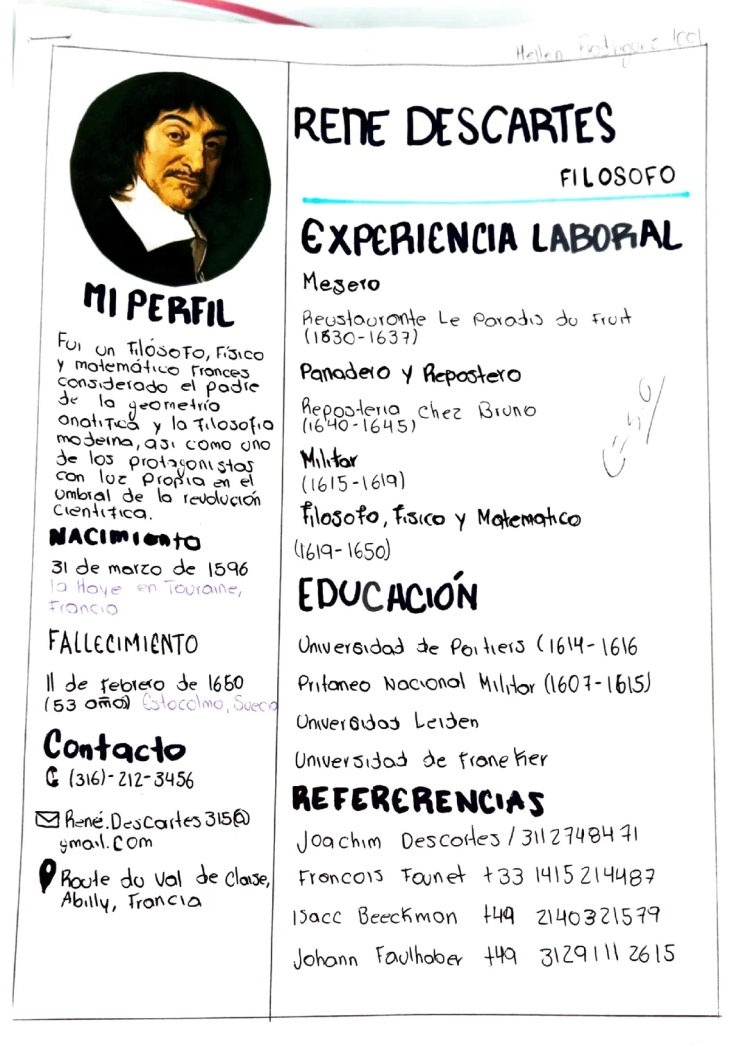 Hellen
RENE DESCARTES
FILOSOFO
MI PERFIL
Fui un filósofo, físico
y matemático frances
considerado el padre
de la geometría
analítica y la filosofia
moderna, asi como uno
de los protagonistas
con luz propia en el
umbral de la revolución
cientifica.
NACIMIENTO
31 de marzo de 1596
la Haye en Touraine,
Francia
FALLECIMIENTO
11 de febrero de 1650
(53 años) Estocolmo, Suecia
Contacto
(316)-212-3456
René.Descartes315@
gmail.com
Route du Val de Claise,
Abilly, Francia
EXPERIENCIA LABORAL
Mesero
Reustaurante Le Paradis du Fruit
(1630-1637)
Panadero y Repostero
Reposteria Chez Bruno
(1640-1645)
Militar
(1615-1619)
filosofo, fisico y Matematico
(1619-1650)
EDUCACIÓN
Universidad de Poitiers (1614-1616
Pritaneo Nacional Militar (1607-1615)
Universidad Leiden
Universidad de franeker
REFERERENCIAS
Joachim Descartes / 3112748471
Francois Founet +33 1415214487
Isacc Beeckman +49 2140321579
Johann Faulhaber +49 3129111 2615